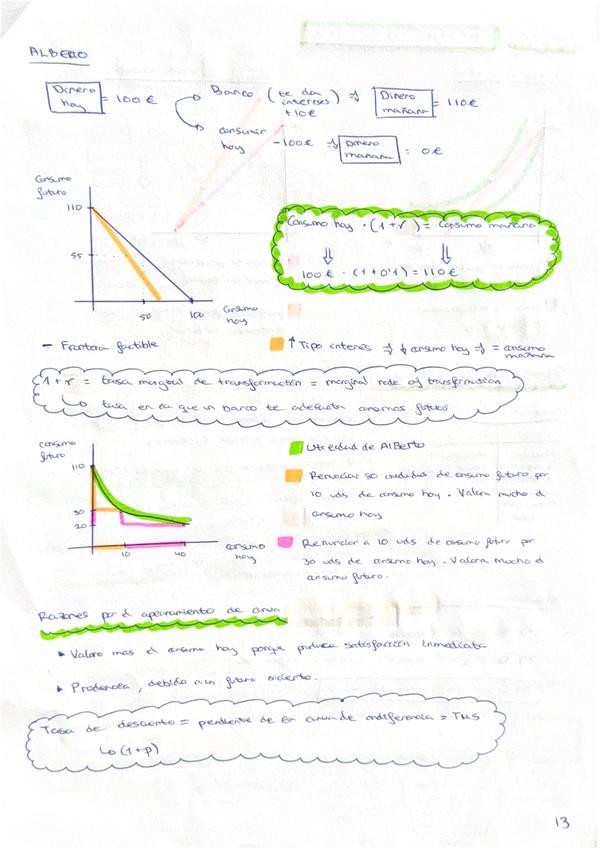 ALBERTO
Dinero hoy = 100€
Banco (te dan intereses) ⇒ Dinero mañana = 110€
+10€
consumir hoy -100€ ⇒ Dinero mañana = 0€
Consumo futuro
110
55
50 100 Consumo hoy
Consumo hoy · (1+r) = consumo mañana
100€ · (1+0'1) = 110€
— Frontera factible
↑ Tipo interés ⇒ ↓ consumo hoy ⇒ = consumo mañana
1+r = tasa marginal de transformación = marginal rate of transformation
↳ tasa en la que un banco te adelanta consumos futuros
consumo futuro
110
30
20
10 40 consumo hoy
Utilidad de Alberto
Renunciar 80 unidades de consumo futuro por
10 uds de consumo hoy. Valora mucho el
consumo hoy
Renunciar a 10 uds de consumo futuro por
30 uds de consumo hoy. Valora mucho el
consumo futuro.
Razones por el apecuramiento de curva
▸ Valoro más el consumo hoy porque produce satisfacción inmediata
▸ Prudencia, debido a un futuro incierto.
Tasa de descuento = pendiente de la curva de indiferencia = TMS
↳ (1+p)
13